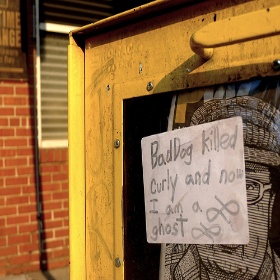 BadDog killed
Curly and now
I am a
ghost